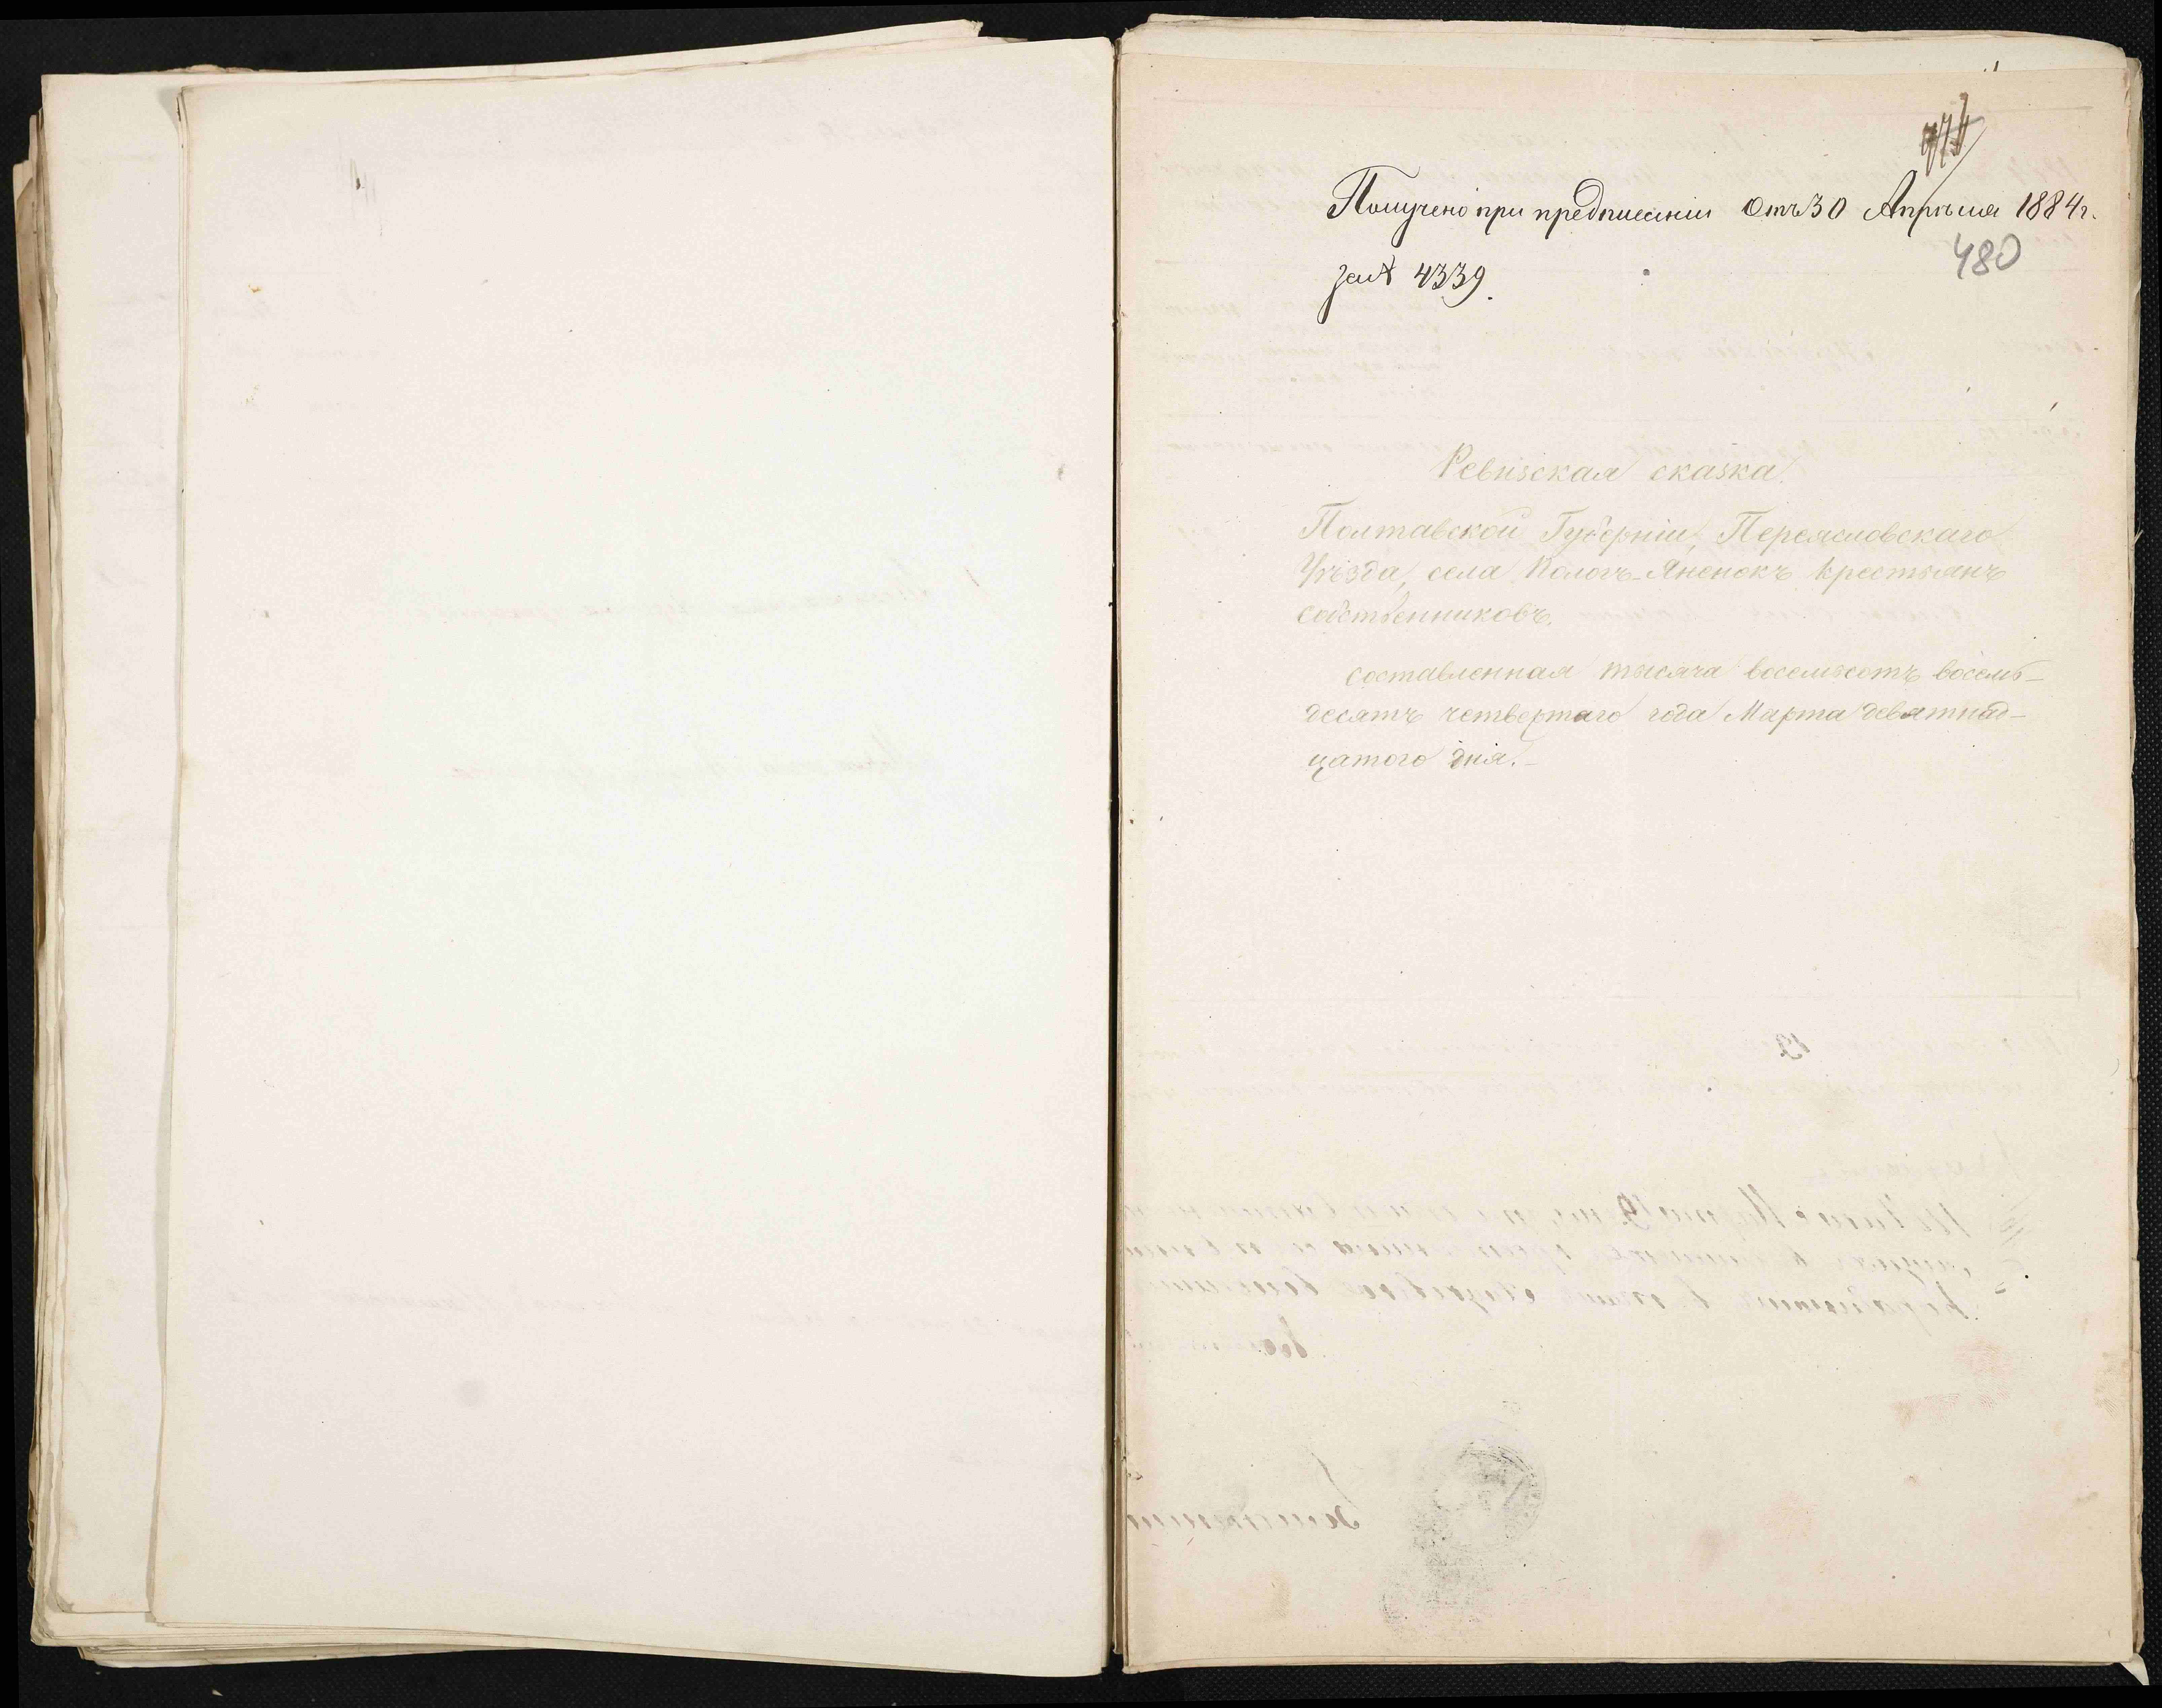 Получено при предписаніи отъ 30 Апрѣля 1884 г.
480
за № 4339.
Ревизская сказка
Полтавской Губерніи, Переясловскаго
Уѣзда, села Пологъ-Яненокъ крестьянъ
собственниковъ.
составленная тысяча восемьсотъ восемь-
десятъ четвертаго года Марта девятнад-
цатого дня.-